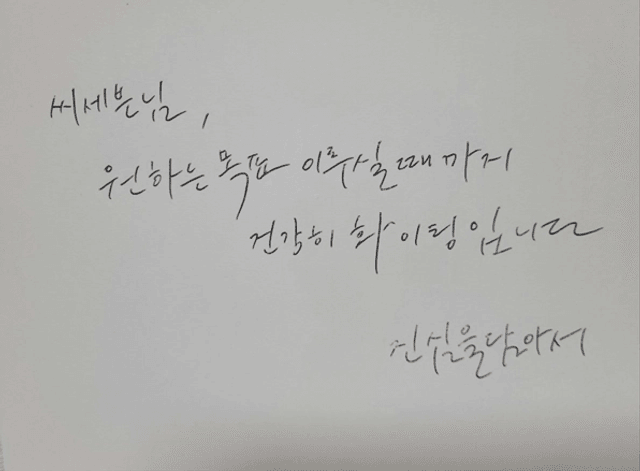 씨세븐님,
원하는 목표 이루실때까지
건강히 화이팅입니다
진심을담아서